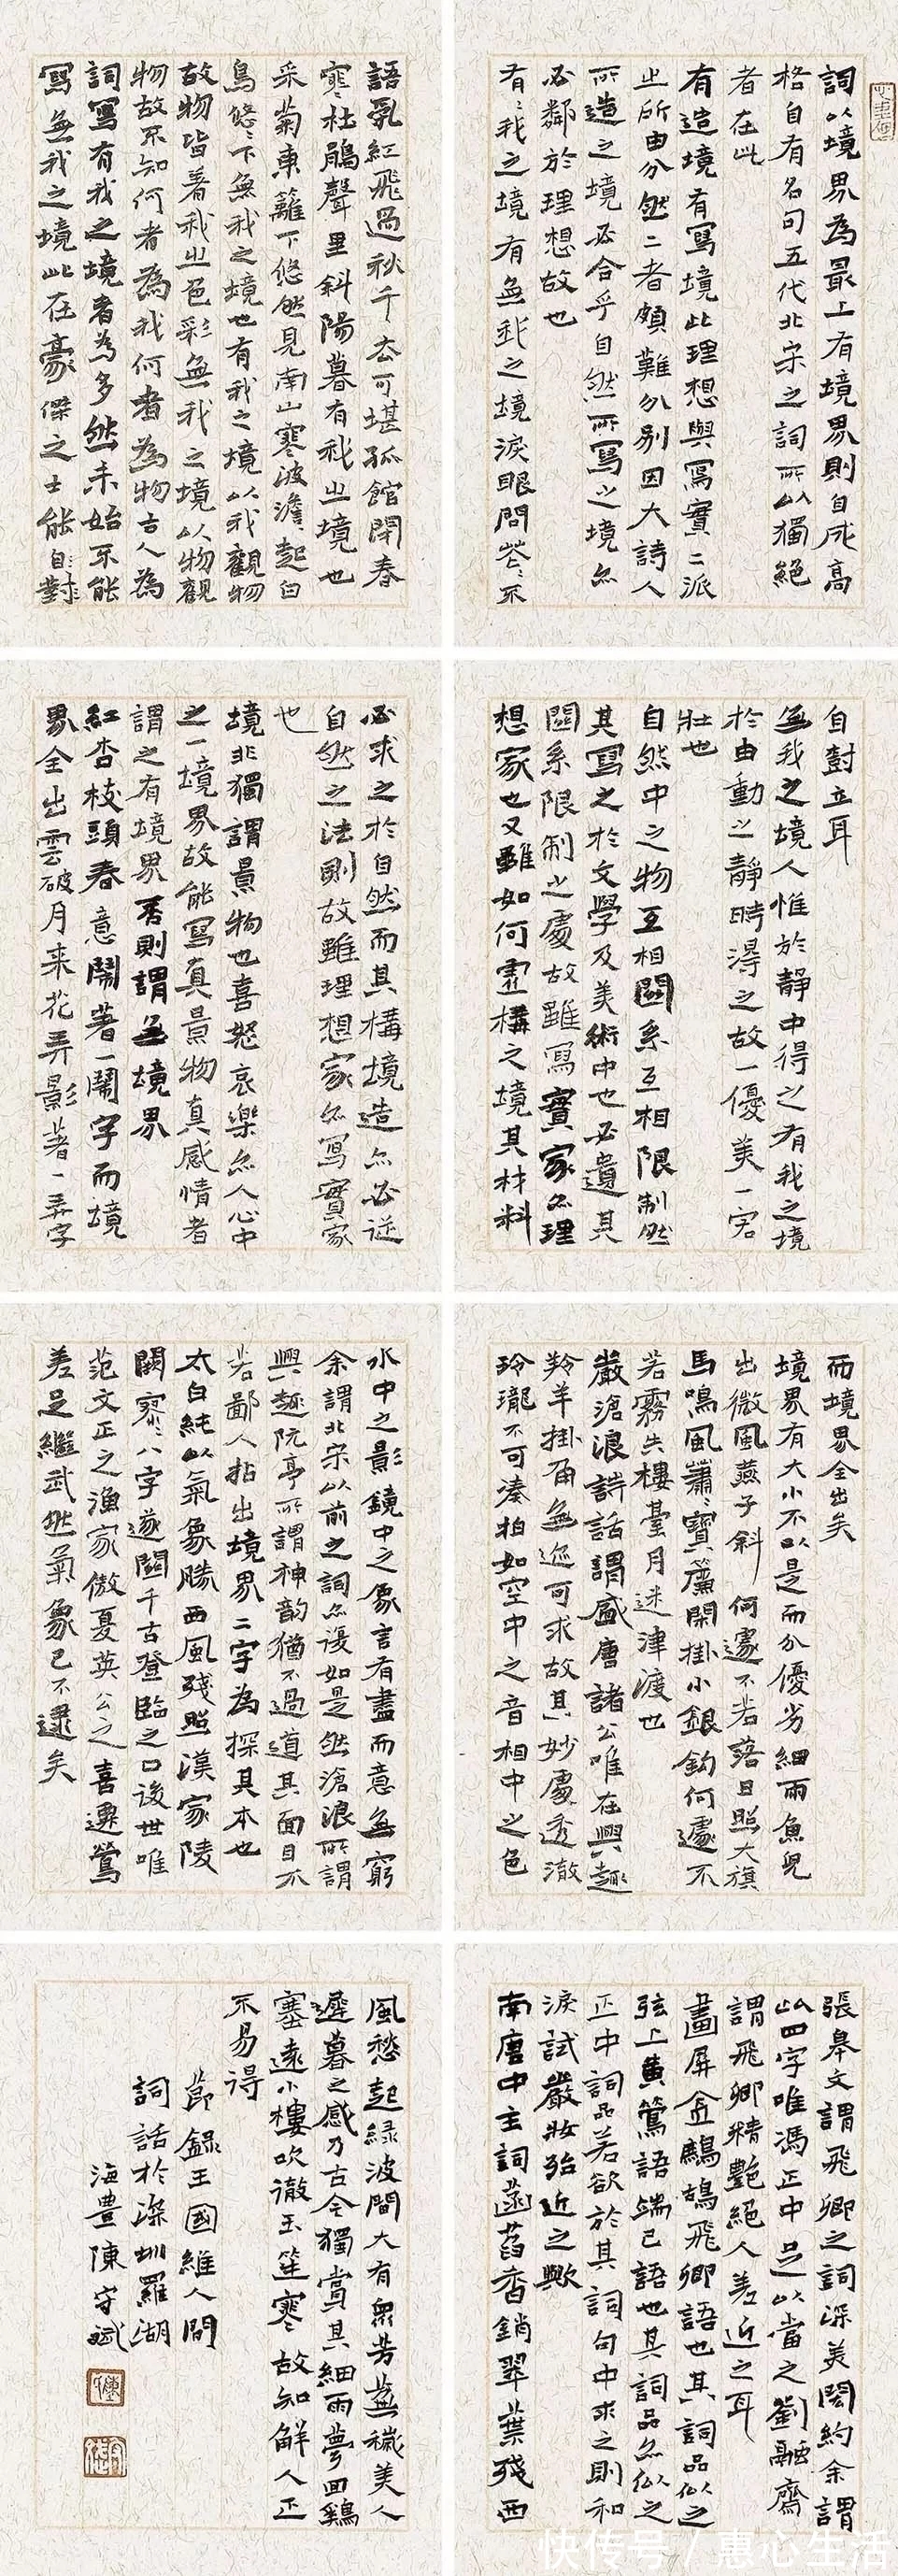 詞以境界為最上有境界則自成高
格自有名句五代北宋之詞所以獨絕
者在此
有造境有寫境此理想與寫實二派
之所由分然二者頗難分別因大詩人
所造之境必合乎自然所寫之境亦
必鄰於理想故也
有〻我之境有無我之境淚眼問花〻不
語亂紅飛過秋千去可堪孤館閉春
寒杜鵑聲里斜陽暮有我之境也
采菊東籬下悠然見南山寒波澹〻起白
鳥悠〻下無我之境也有我之境以我觀物
故物皆著我之色彩無我之境以物觀
物故不知何者為我何者為物古人為
詞寫有我之境者為多然未始不能
寫無我之境此在豪傑之士能自對
自對立耳
無我之境人惟於靜中得之有我之境
於由動之靜時得之故一優美一宏
壯也
自然中之物互相關系互相限制然
其寫之於文學及美術中也必遺其
關系限制之處故雖寫實家亦理
想家也又雖如何虛構之境其材料
必求之於自然而其構境造亦必從
自然之法則故雖理想家亦寫實家
也
境非獨謂景物也喜怒哀樂亦人心中
之一境界故能寫真景物真感情者
謂之有境界否則謂無境界
紅杏枝頭春意鬧著一鬧字而境
界全出雲破月来花弄影著一弄字
而境界全出矣
境界有大小不以是而分優劣細雨魚兒
出微風燕子斜何遽不若落日照大旗
馬鳴風蕭〻寶簾閑掛小銀鈎何遽不
若霧失樓臺月迷津渡也
嚴滄浪詩話謂盛唐諸公唯在興趣
羚羊掛角無迹可求故其妙處透澈
玲瓏不可湊拍如空中之音相中之色
水中之影鏡中之象言有盡而意無窮
余謂北宋以前之詞亦復如是然滄浪所謂
興趣阮亭所謂神韵猶不過道其面目不
若鄙人拈出境界二字為探其本也
太白純以氣象勝西風殘照漢家陵
闕寥〻八字遂關千古登臨之口後世唯
范文正之漁家傲夏英公之喜遷鶯
差足繼武然氣象已不逮矣
張皋文謂飛卿之詞深美閎約余謂
此四字唯馮正中足以當之劉融齋
謂飛卿精艷絕人差近之耳
畫屏金鷓鴣飛卿語也其詞品似之
弦上黄鶯語端己語也其詞品亦似之
正中詞品若欲於其詞句中求之則和
淚試嚴妝殆近之歟
南唐中主詞菡萏香銷翠葉殘西
風愁起綠波間大有衆芳蕪穢美人
遲暮之感乃古今獨賞其細雨夢回鷄
塞遠小樓吹徹玉笙寒故知解人正
不易得
節錄王國維人間
詞話於深圳羅湖
海豊陳守斌
快传号/惠心生活